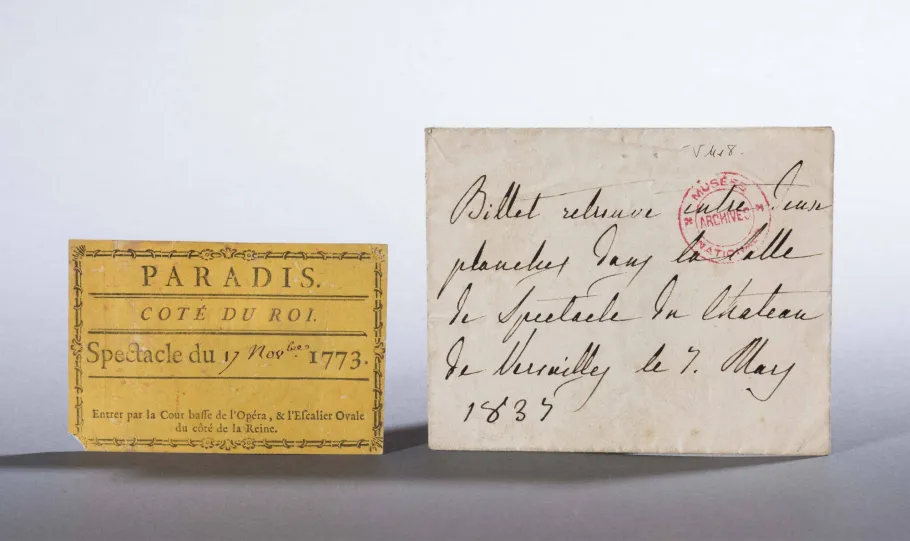 PARADIS.
COTÉ DU ROI.
Spectacle du 17 Novbre 1773.
Entrer par la Cour baſſe de l'Opéra, & l'Eſcalier Ovale
du côté de la Reine.
Billet retrouvé entre deux
planches dans la Salle
de Spectacle du Chateau
de Versailles le 7. Mars
1837
MUSÉES
ARCHIVES
NATIONALES